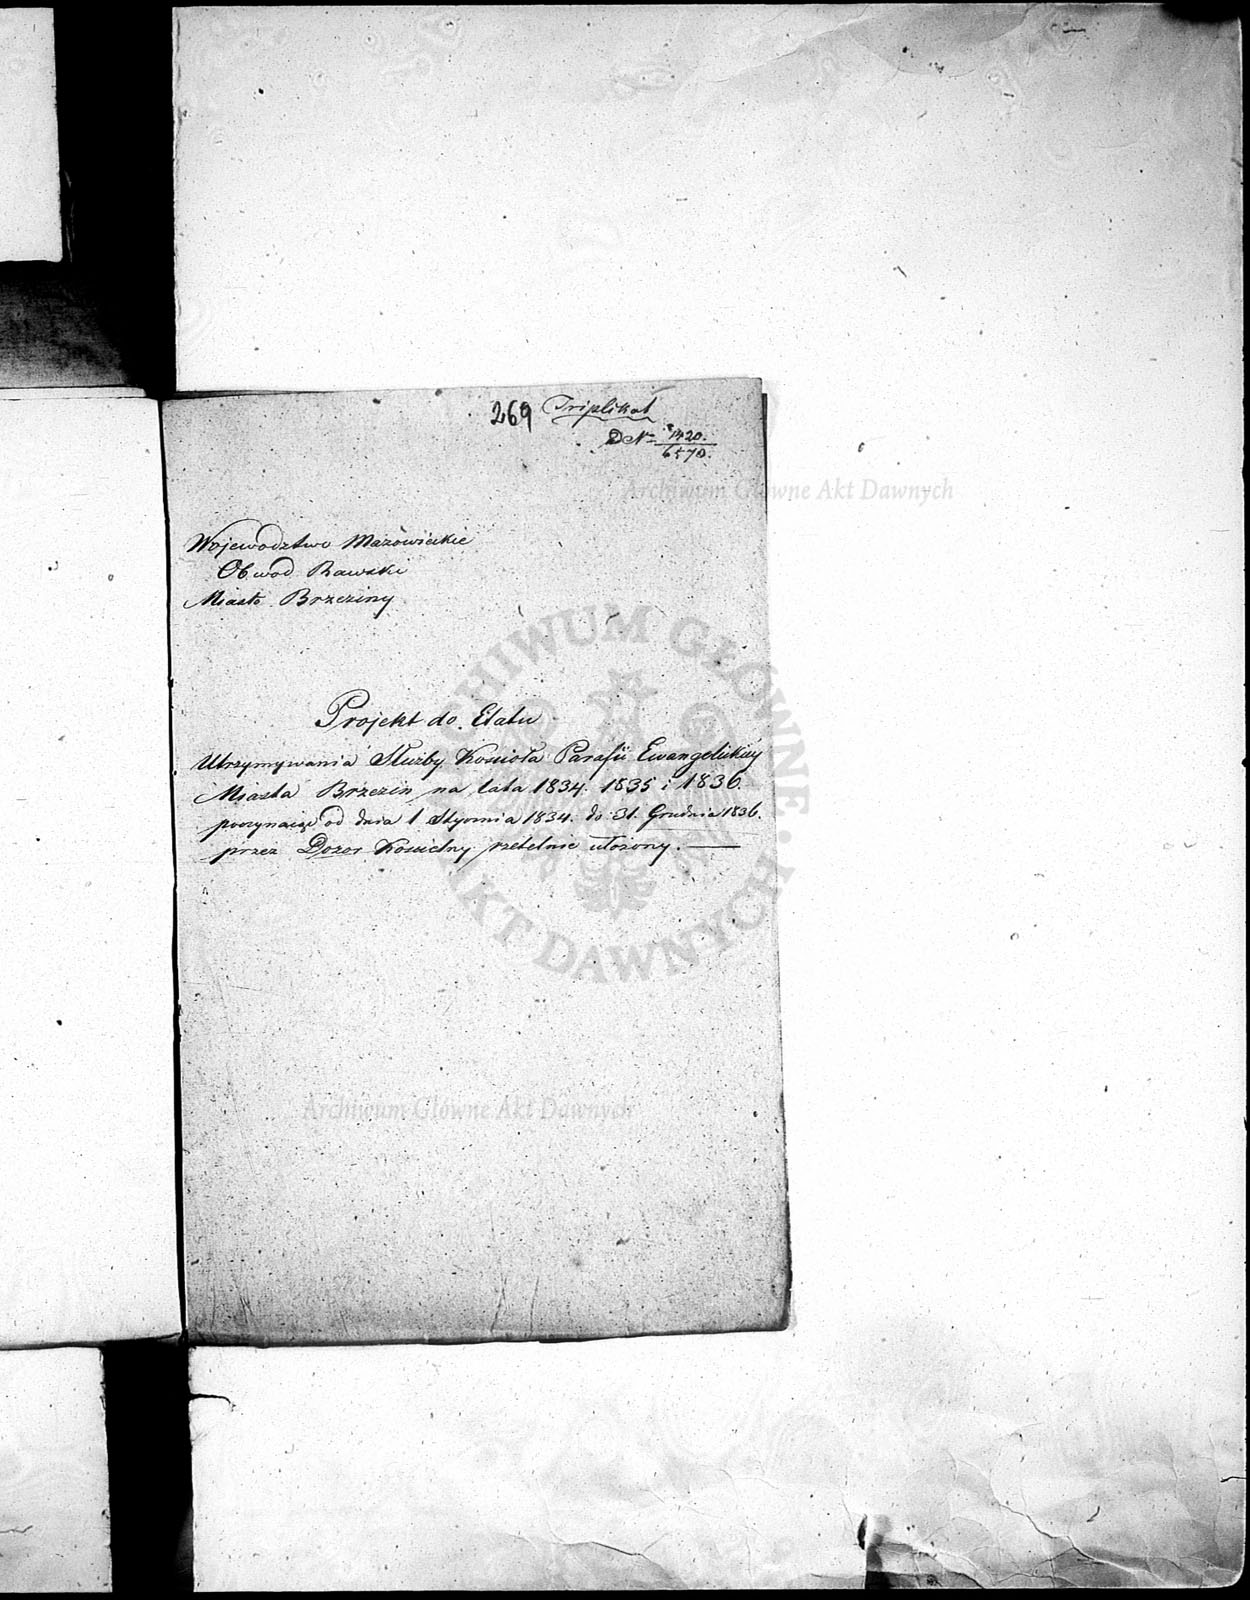 269 Triplikat
D N° 1420.
6570.
Archiwum Główne Akt Dawnych
Województwo Mazowieckie
Obwod Rawski
Miasto Brzeziny
ARCHIWUM GŁÓWNE AKT DAWNYCH
Projekt do Etatu
Utrzymywania Służby Kościoła Parafii Ewangelickiey
Miasta Brzezin na lata 1834. 1835 i 1836.
poczynaiąc od dnia 1 Stycznia 1834. do 31. Grudnia 1836.
przez Dozor Koscielny rzetelnie ułożony.
Archiwum Główne Akt Dawnych